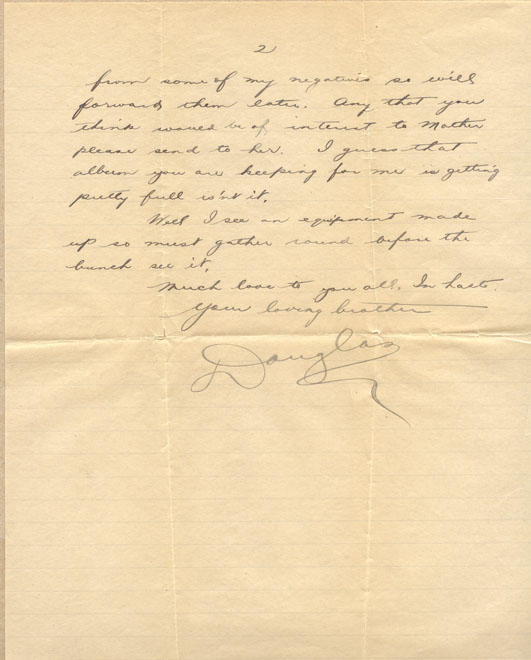 2
from some of my negatives so will
forward them later. Any that you
think would be of interest to Mother
please send to her. I guess that
album you are keeping for me is getting
pretty full is'nt it.
Well I see an equipment made
up so must gather round before the
bunch see it.
Much love to you all. In haste.
Your loving brother
Douglas